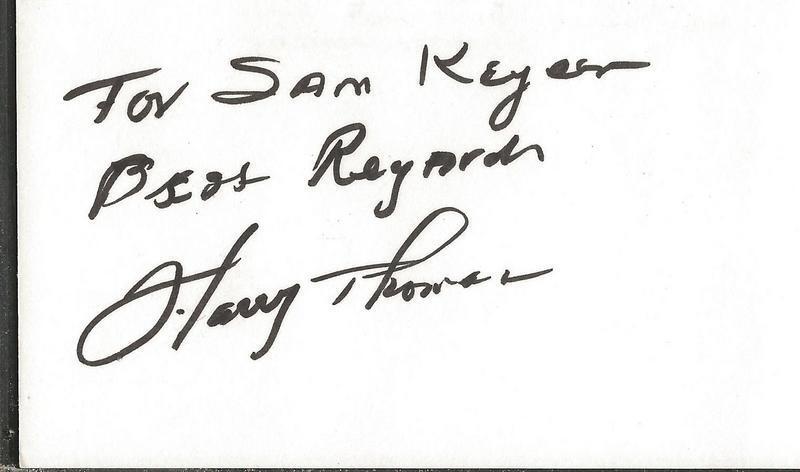 For Sam Keyser
Best Regards
Harry Thomas